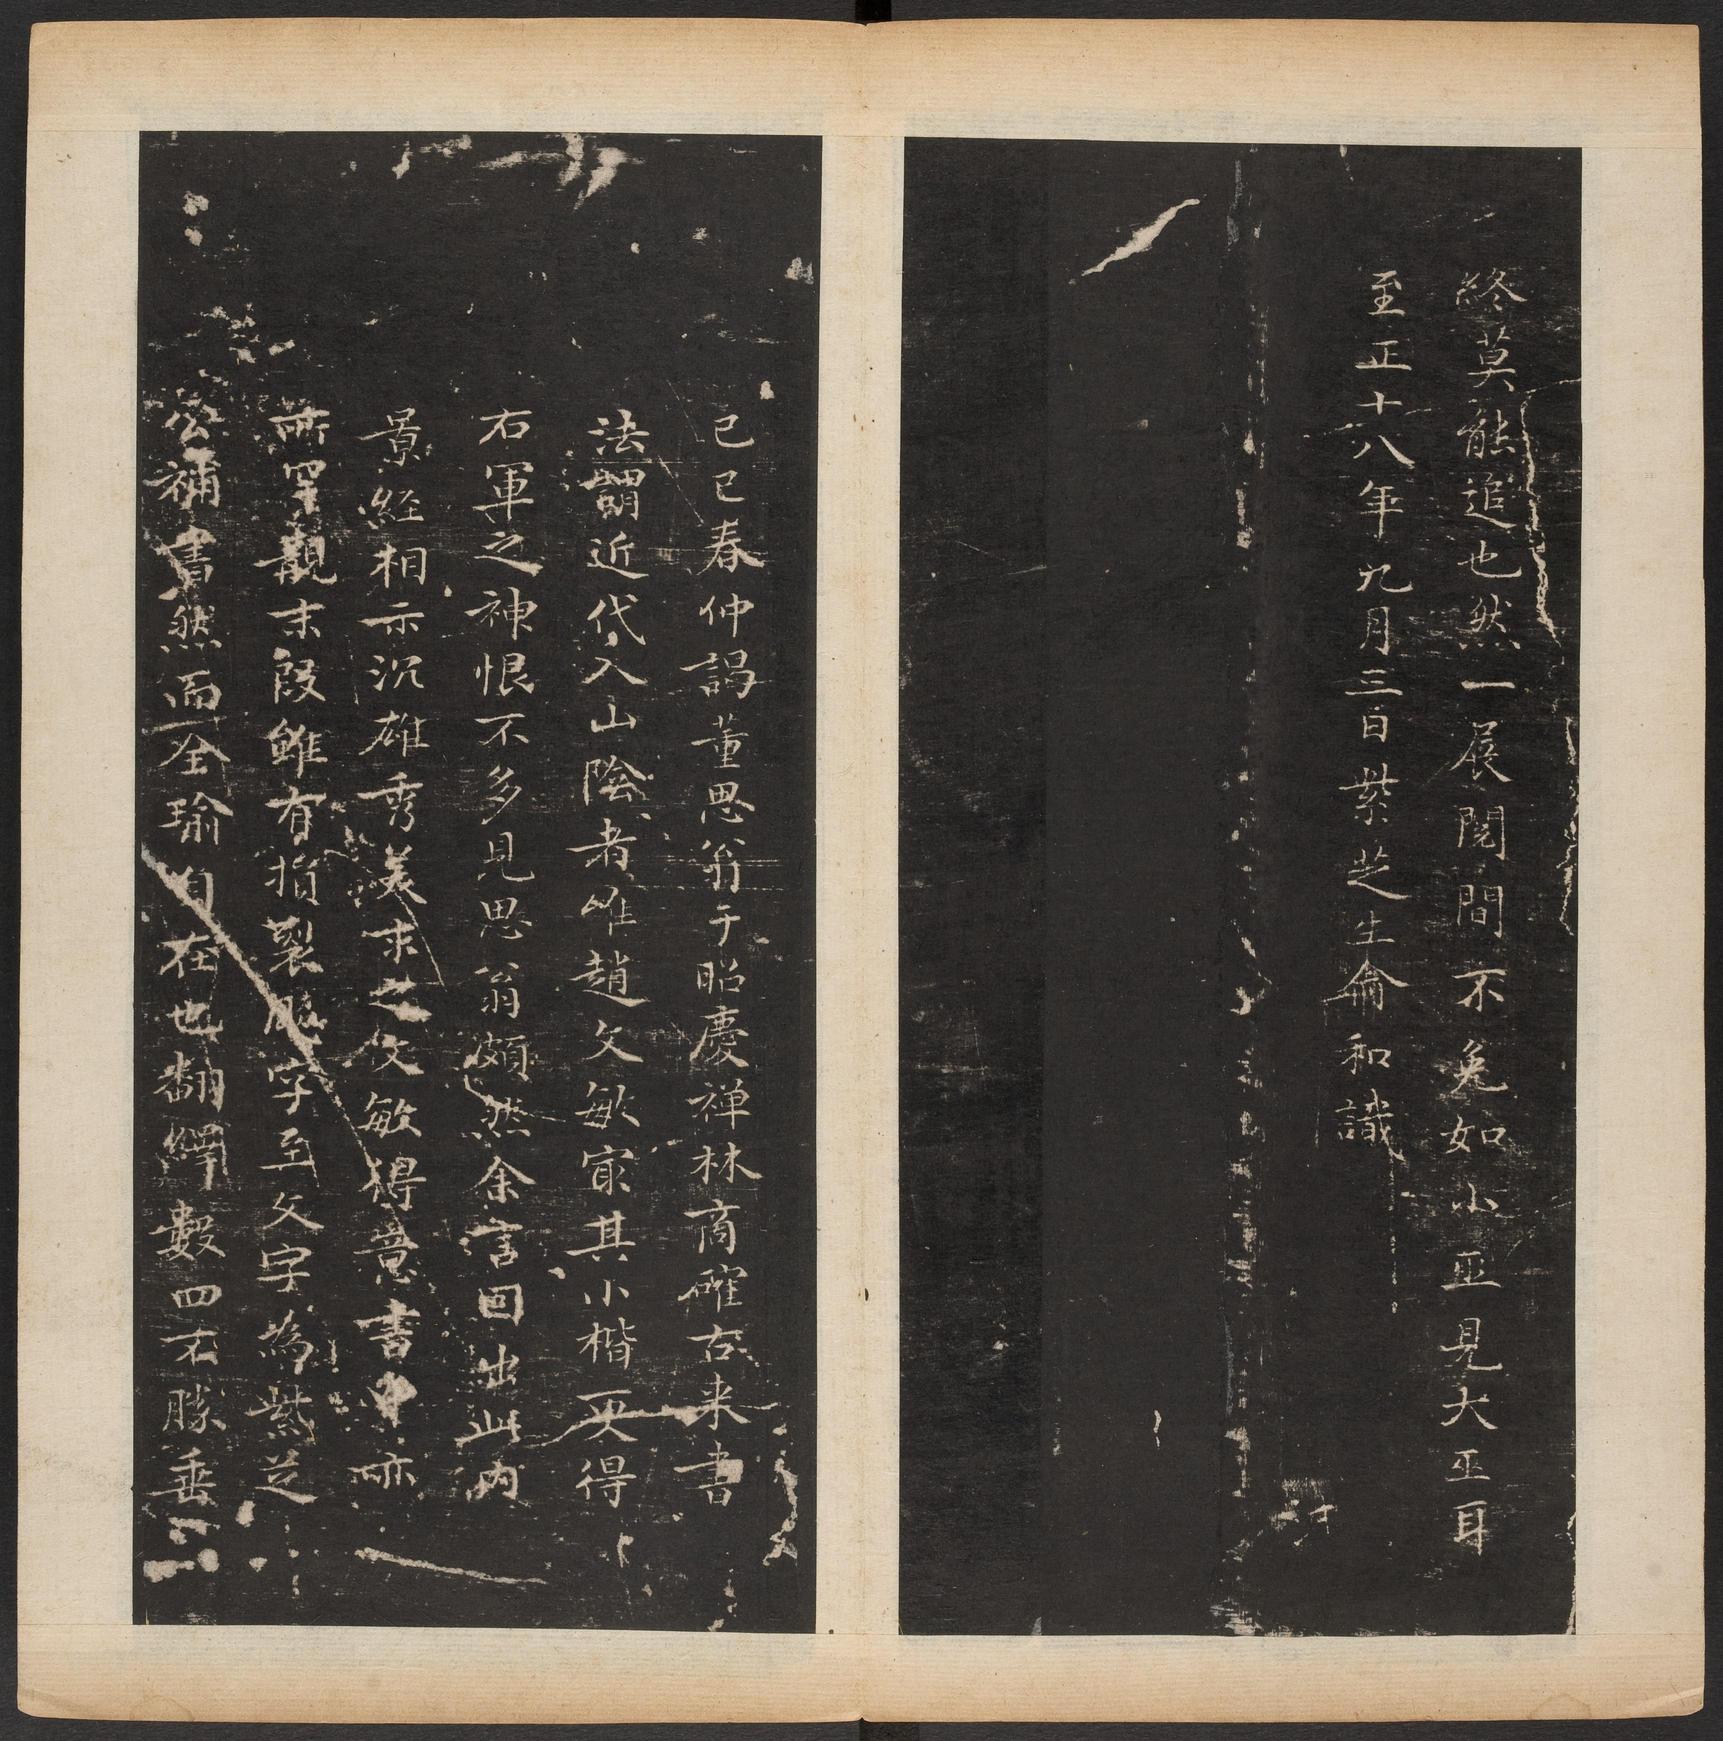 終莫能追也然一展閱間不免如小巫見大巫耳
至正十八年九月三日紫芝生俞和識
己巳春仲謁董思翁于昭慶禪林商確古来書
法謂近代入山陰者唯趙文敏寂其小楷更得
右軍之神恨不多見思翁頗然余言回出此內
景経相示沉雄秀美求之文敏得意書中亦
所罕觀末段雖有損裂眼字至文字為紫芝
公補書然而全瑜自在也翻繹數四不勝垂